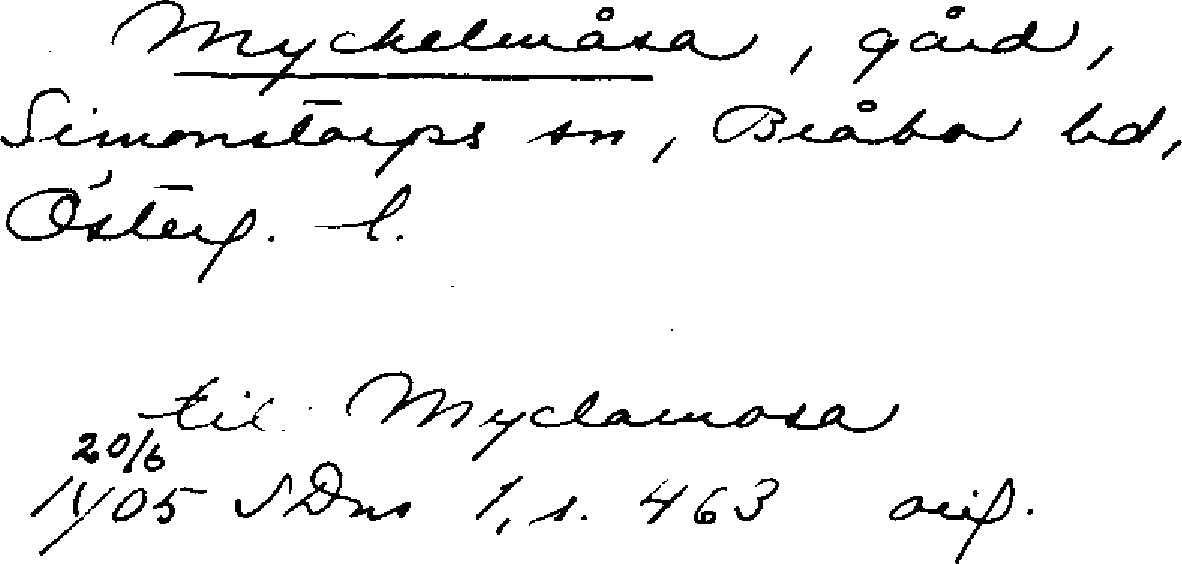 Myckelmåsa, gård,
Simonstorps sn, Bråbo hd,
Österg. l.
til Myclamosa
20/6
1405 SDns 1, s. 463 orig.